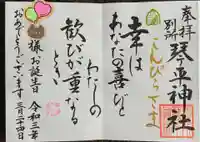 奉拝
別所
琴平神社
こんぴらさま
幸は
あなたの喜びと
わたしの
歓びが重なる
とき
様 お誕生日
おめでとうございます
令和三年
三月二十四日